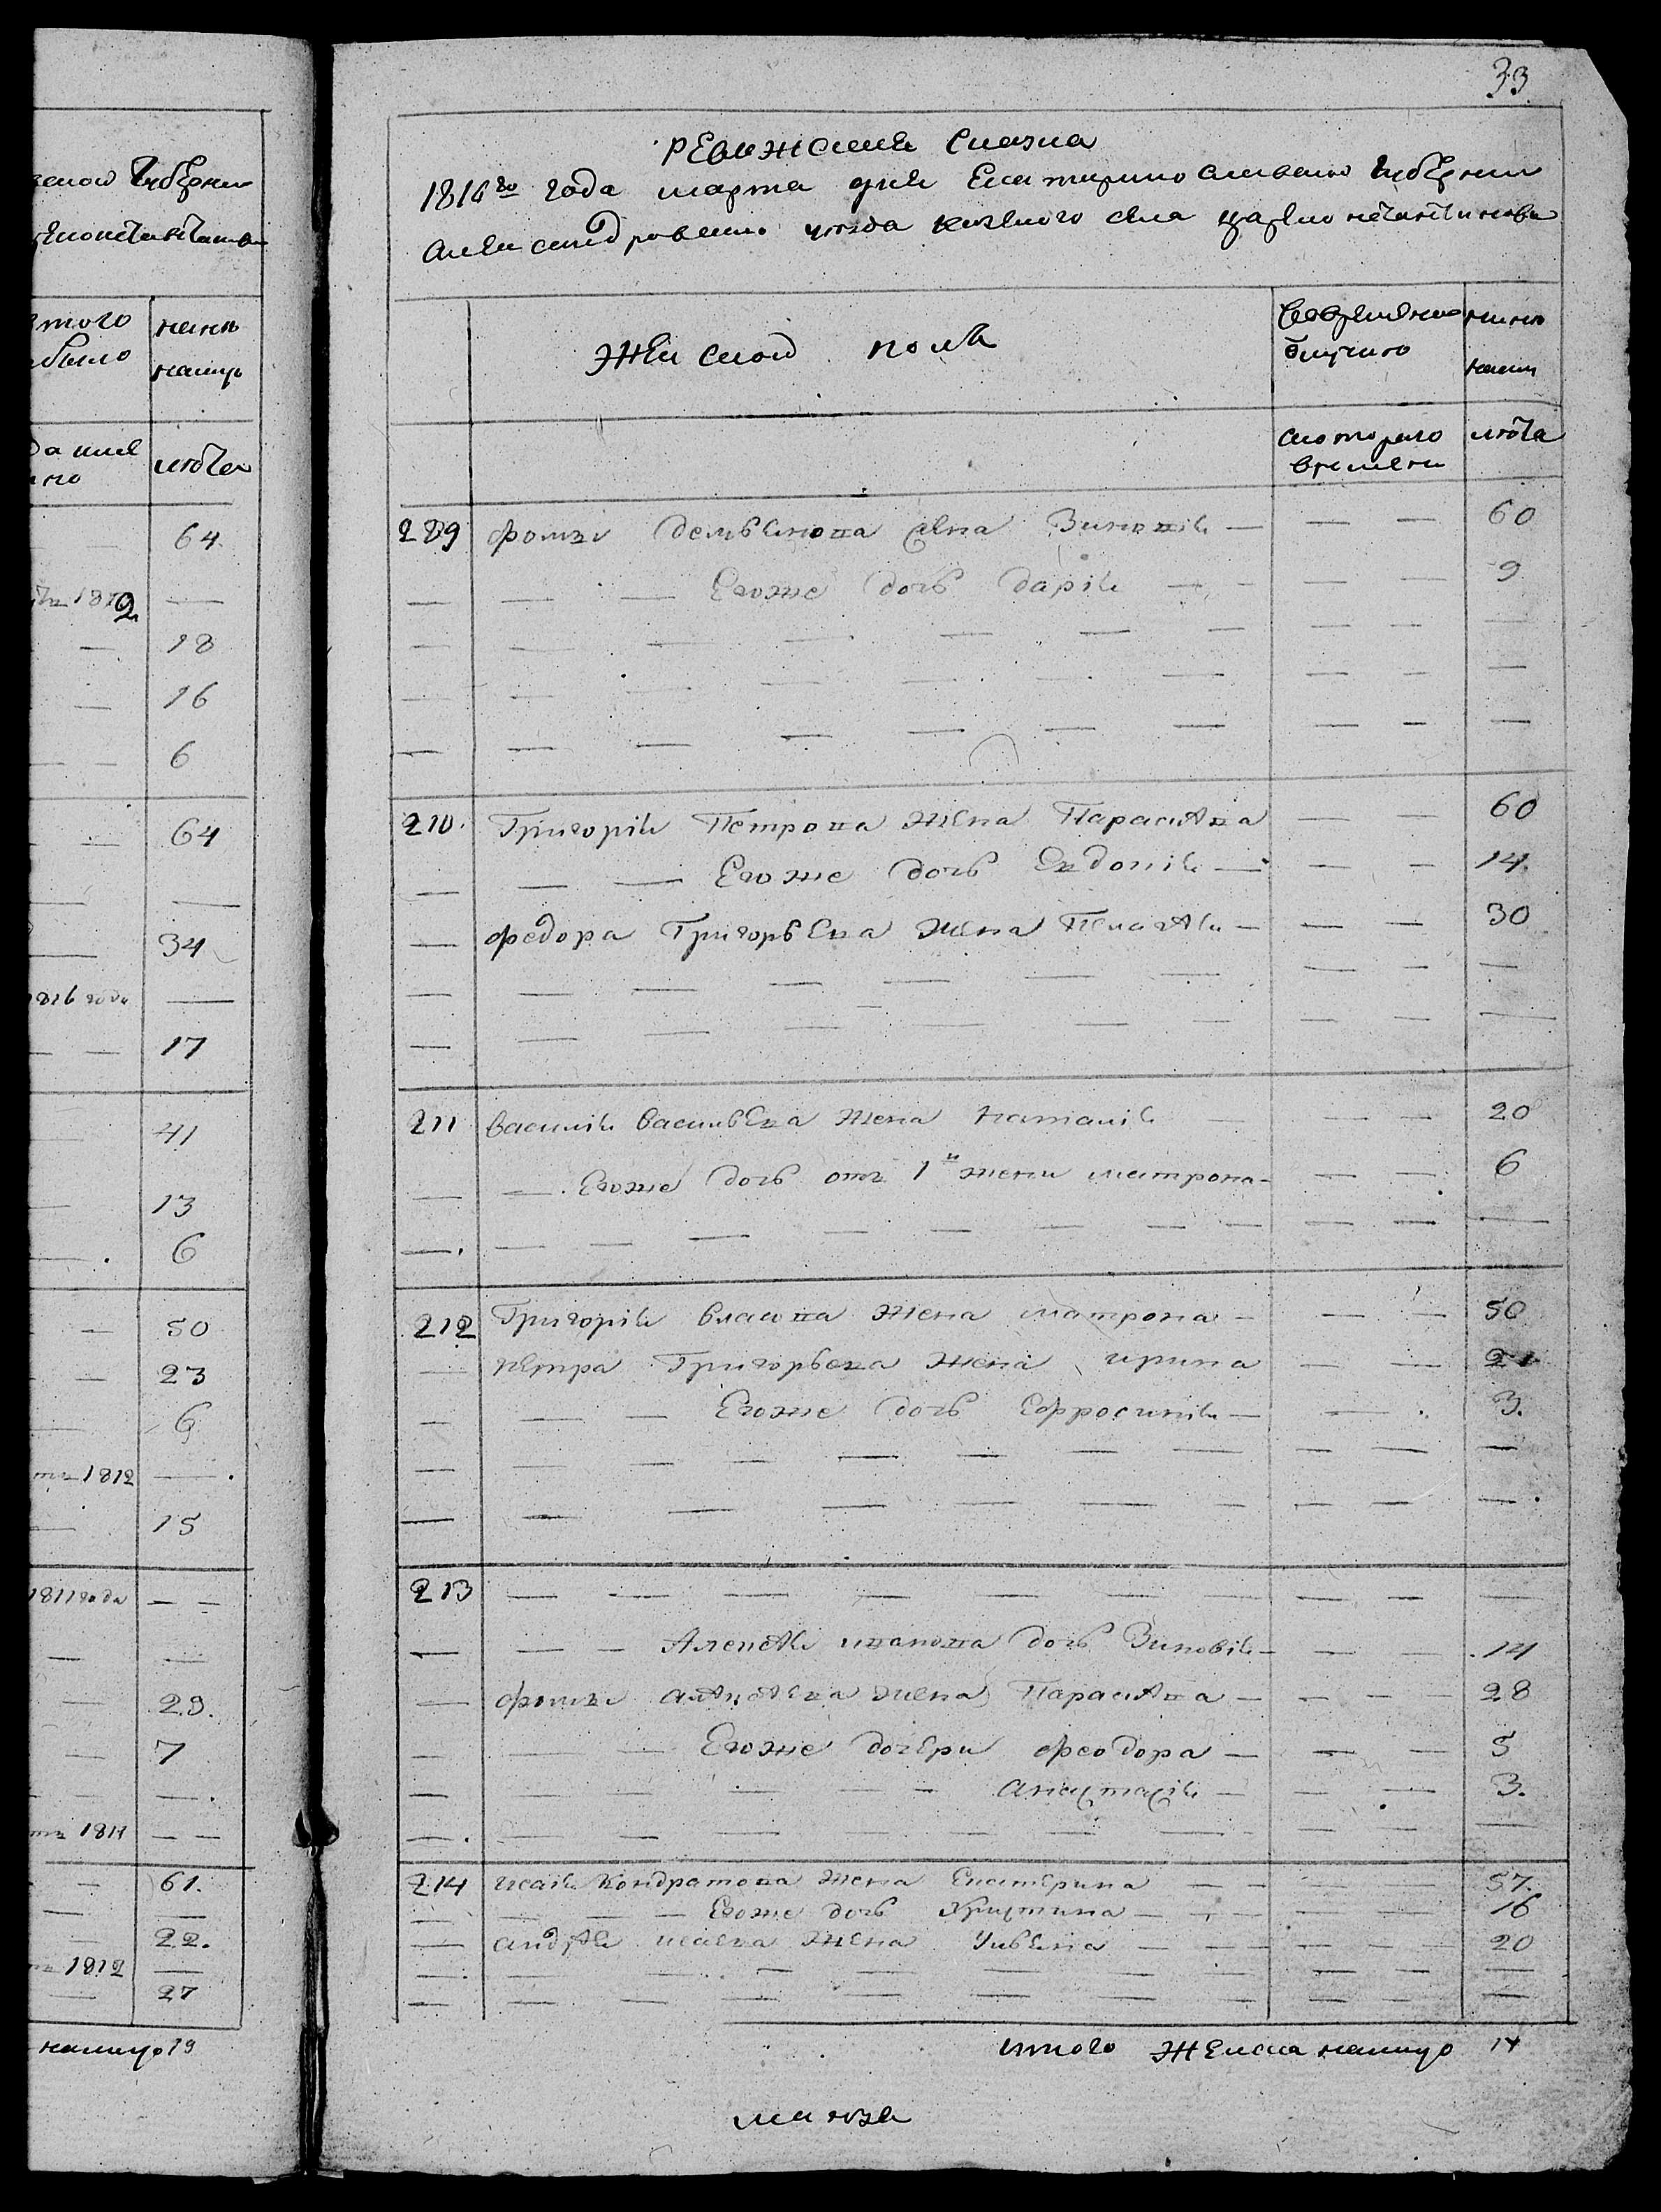 33
Ревижская Сказка
1816го года марта дня Екатеринославской Губернии
Александровского уезда казенного села Цареконстантиновки
Женской пол
Во временной отлучке
ныне на лицо
с которого времени
лета
209 Фомы Дементиева жена Зиновия — — — 60
— — — Егоже дочь Дария — — — 9
210. Григория Петрова жена Параскева — — 60
— — — Егоже дочь Евдокия — — — 14.
— Федора Григорьева жена Пелагея — — — 30
211 Василия Васильева жена Наталия — — — 20
— — Егоже дочь отъ 1й жены Матрона — — — 6
212 Григория Власова жена Матрона — — — 50
— Петра Григорьева жена Ирина — — 21
— — — Егоже дочь Ефросиния — — . 3.
213 — — — — — — — — — —
— — — Алексея Иванова дочь Зиновия — — — 14
— Фомы Алексеева жена Параскева — — — 28
— — — Егоже дочери Феодора — — — 5
— — — — — — Анастасия — — — 3.
214 Исаия Кондратова жена Екатерина — — — — 57.
— — — — Егоже дочь Христина — — — — — 16
— Андрея Исаева жена Ульяна — — — — — — 20
итого женска налицо 14
губернии
Цареконстантиновки
того
было
ныне
налицо
лета
64.
1812 —
— 18
— 16
— — 6
— — 64
— —
— 34
1816 года —
— — 17
— 41
— 13
— . 6
— 50
— — 23
— 6
1812 — .
— 15
1811 года — —
— —
— 29.
— 7
— — — .
1811 — —
— 61.
— —
— 22.
1812 —
— 27
налицо 19